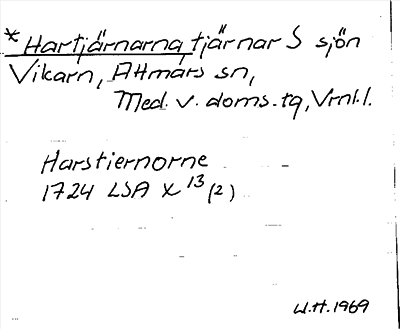 * Hartjärnarna, tjärnar S sjön
Vikarn, Attmars sn,
Med. v. doms. tg, Vrnl. l.
Harstiernorne
1724 LSA X 13 (2)
W.H. 1969